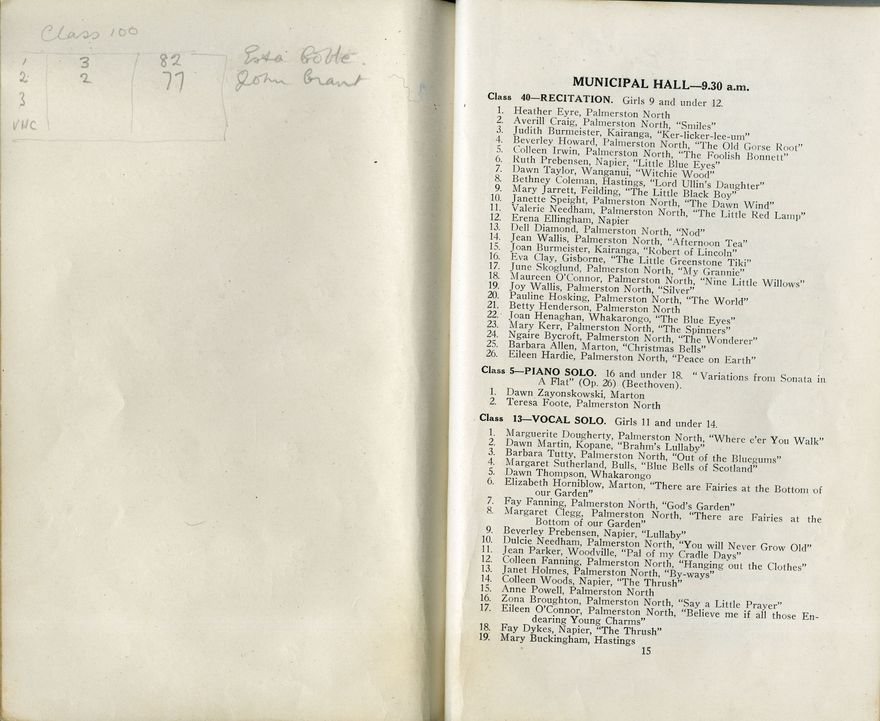 Class 100
1 3 82 Esta Goble.
2 2 77 John Grant
3
VHC
MUNICIPAL HALL—9.30 a.m.
Class 40—RECITATION. Girls 9 and under 12.
1. Heather Eyre, Palmerston North
2. Averill Craig, Palmerston North, "Smiles"
3. Judith Burmeister, Kairanga, "Ker-licker-lee-um"
4. Beverley Howard, Palmerston North, "The Old Gorse Root"
5. Colleen Irwin, Palmerston North, "The Foolish Bonnett"
6. Ruth Prebensen, Napier, "Little Blue Eyes"
7. Dawn Taylor, Wanganui, "Witchie Wood"
8. Bethney Coleman, Hastings, "Lord Ullin's Daughter"
9. Mary Jarrett, Feilding, "The Little Black Boy"
10. Janette Speight, Palmerston North, "The Dawn Wind"
11. Valerie Needham, Palmerston North, "The Little Red Lamp"
12. Erena Ellingham, Napier
13. Dell Diamond, Palmerston North, "Nod"
14. Jean Wallis, Palmerston North, "Afternoon Tea"
15. Joan Burmeister, Kairanga, "Robert of Lincoln"
16. Eva Clay, Gisborne, "The Little Greenstone Tiki"
17. June Skoglund, Palmerston North, "My Grannie"
18. Maureen O'Connor, Palmerston North, "Nine Little Willows"
19. Joy Wallis, Palmerston North, "Silver"
20. Pauline Hosking, Palmerston North, "The World"
21. Betty Henderson, Palmerston North
22. Joan Henaghan, Whakarongo, "The Blue Eyes"
23. Mary Kerr, Palmerston North, "The Spinners"
24. Ngaire Bycroft, Palmerston North, "The Wonderer"
25. Barbara Allen, Marton, "Christmas Bells"
26. Eileen Hardie, Palmerston North, "Peace on Earth"
Class 5—PIANO SOLO. 16 and under 18. "Variations from Sonata in
A Flat" (Op. 26) (Beethoven).
1. Dawn Zayonskowski, Marton
2. Teresa Foote, Palmerston North
Class 13—VOCAL SOLO. Girls 11 and under 14.
1. Marguerite Dougherty, Palmerston North, "Where e'er You Walk"
2. Dawn Martin, Kopane, "Brahm's Lullaby"
3. Barbara Tutty, Palmerston North, "Out of the Bluegums"
4. Margaret Sutherland, Bulls, "Blue Bells of Scotland"
5. Dawn Thompson, Whakarongo
6. Elizabeth Horniblow, Marton, "There are Fairies at the Bottom of
our Garden"
7. Fay Fanning, Palmerston North, "God's Garden"
8. Margaret Clegg, Palmerston North, "There are Fairies at the
Bottom of our Garden"
9. Beverley Prebensen, Napier, "Lullaby"
10. Dulcie Needham, Palmerston North, "You will Never Grow Old"
11. Jean Parker, Woodville, "Pal of my Cradle Days"
12. Colleen Fanning, Palmerston North, "Hanging out the Clothes"
13. Janet Holmes, Palmerston North, "By-ways"
14. Colleen Woods, Napier, "The Thrush"
15. Anne Powell, Palmerston North
16. Zona Broughton, Palmerston North, "Say a Little Prayer"
17. Eileen O'Connor, Palmerston North, "Believe me if all those En-
dearing Young Charms"
18. Fay Dykes, Napier, "The Thrush"
19. Mary Buckingham, Hastings
15